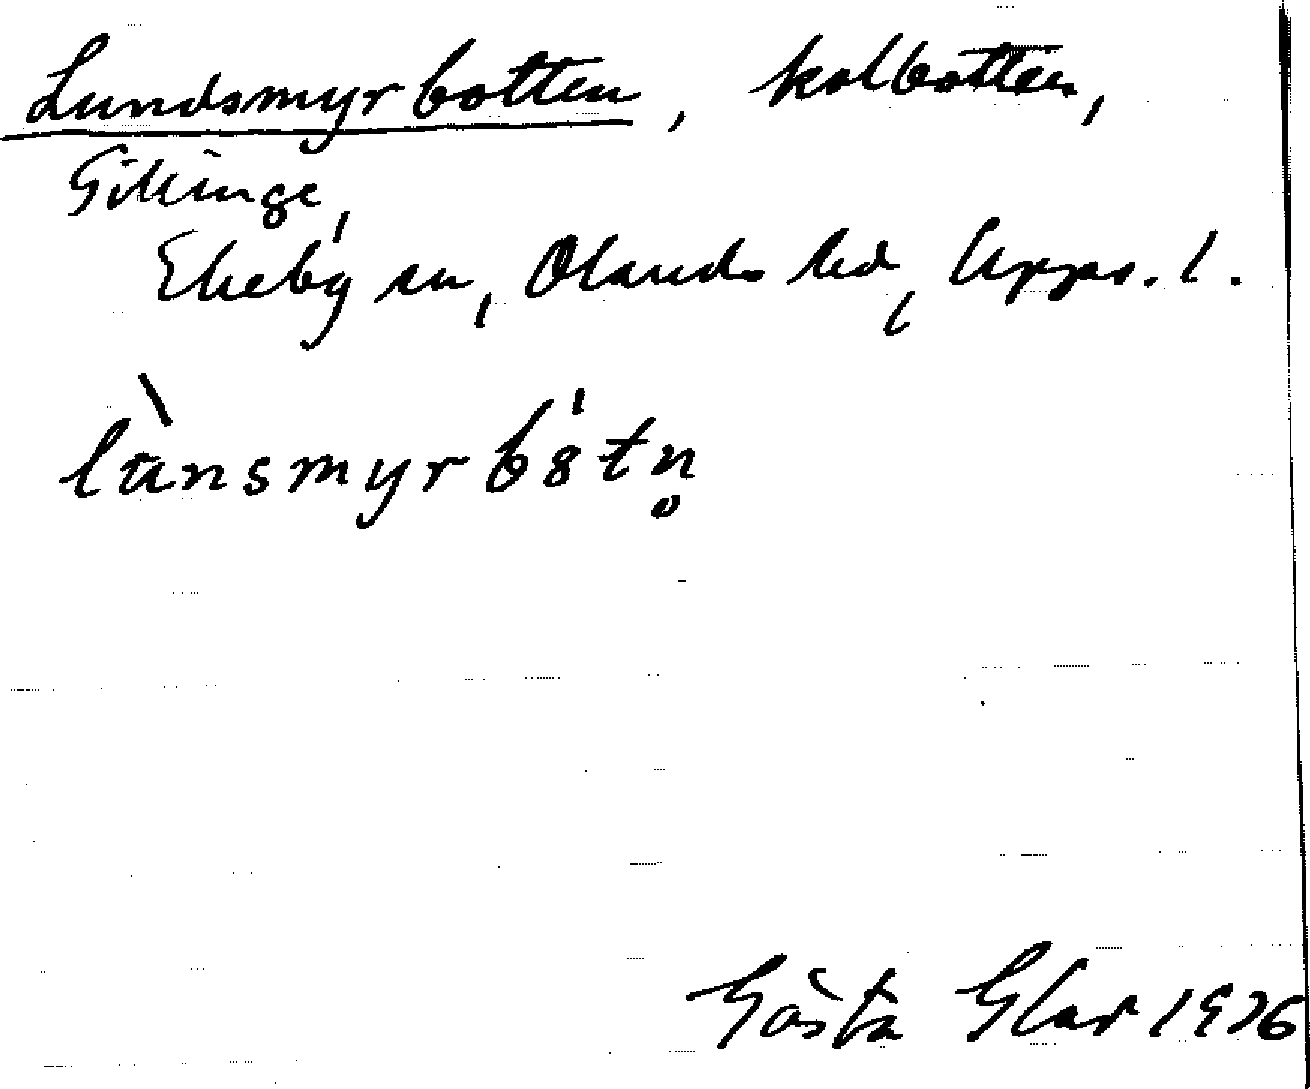 Lundsmyrbotten, kolbotten,
Gillinge,
Ekeby sn, Olands hd, Upps. l.
lànsmyrbȯtn̥
Gösta Glar 1976